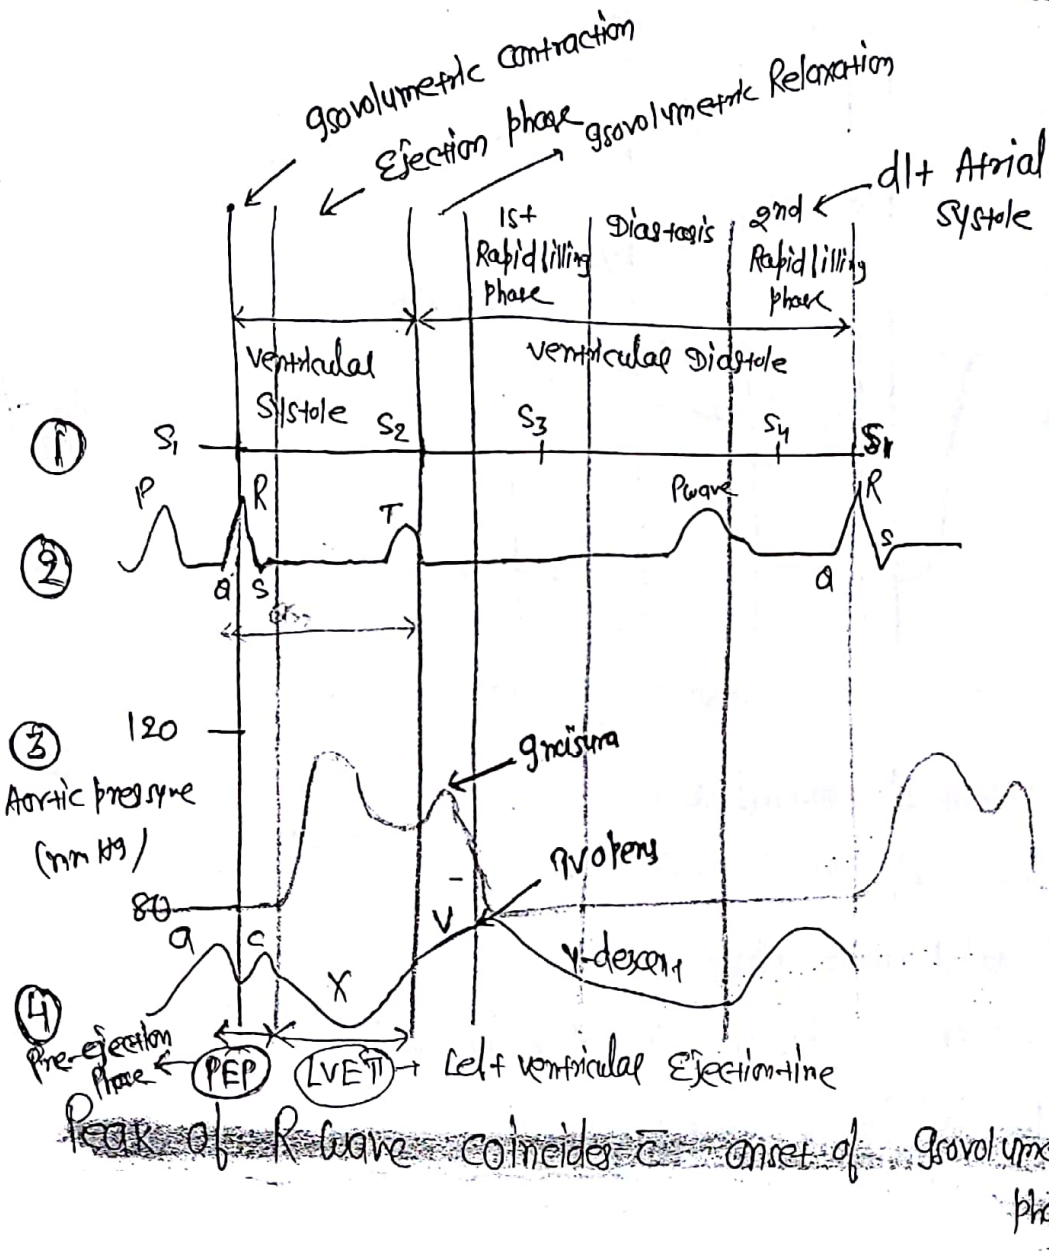 Isovolumetric Contraction
Ejection phase
Isovolumetric Relaxation
d/t Atrial
Systole
1st
Rapid filling
phase
Diastasis
2nd
Rapid filling
phase
Ventricular
Systole
Ventricular Diastole
1
S1
S2
S3
S4
S1
2
P
Q
R
S
T
P wave
Q
R
S
3
Aortic pressure
(mm Hg)
120
80
Incisura
AV opens
4
a
c
X
V
Y-descent
Pre-ejection
Phase
PEP
LVET
Left ventricular Ejection time
Peak of R wave coincides c̄ onset of Isovolume